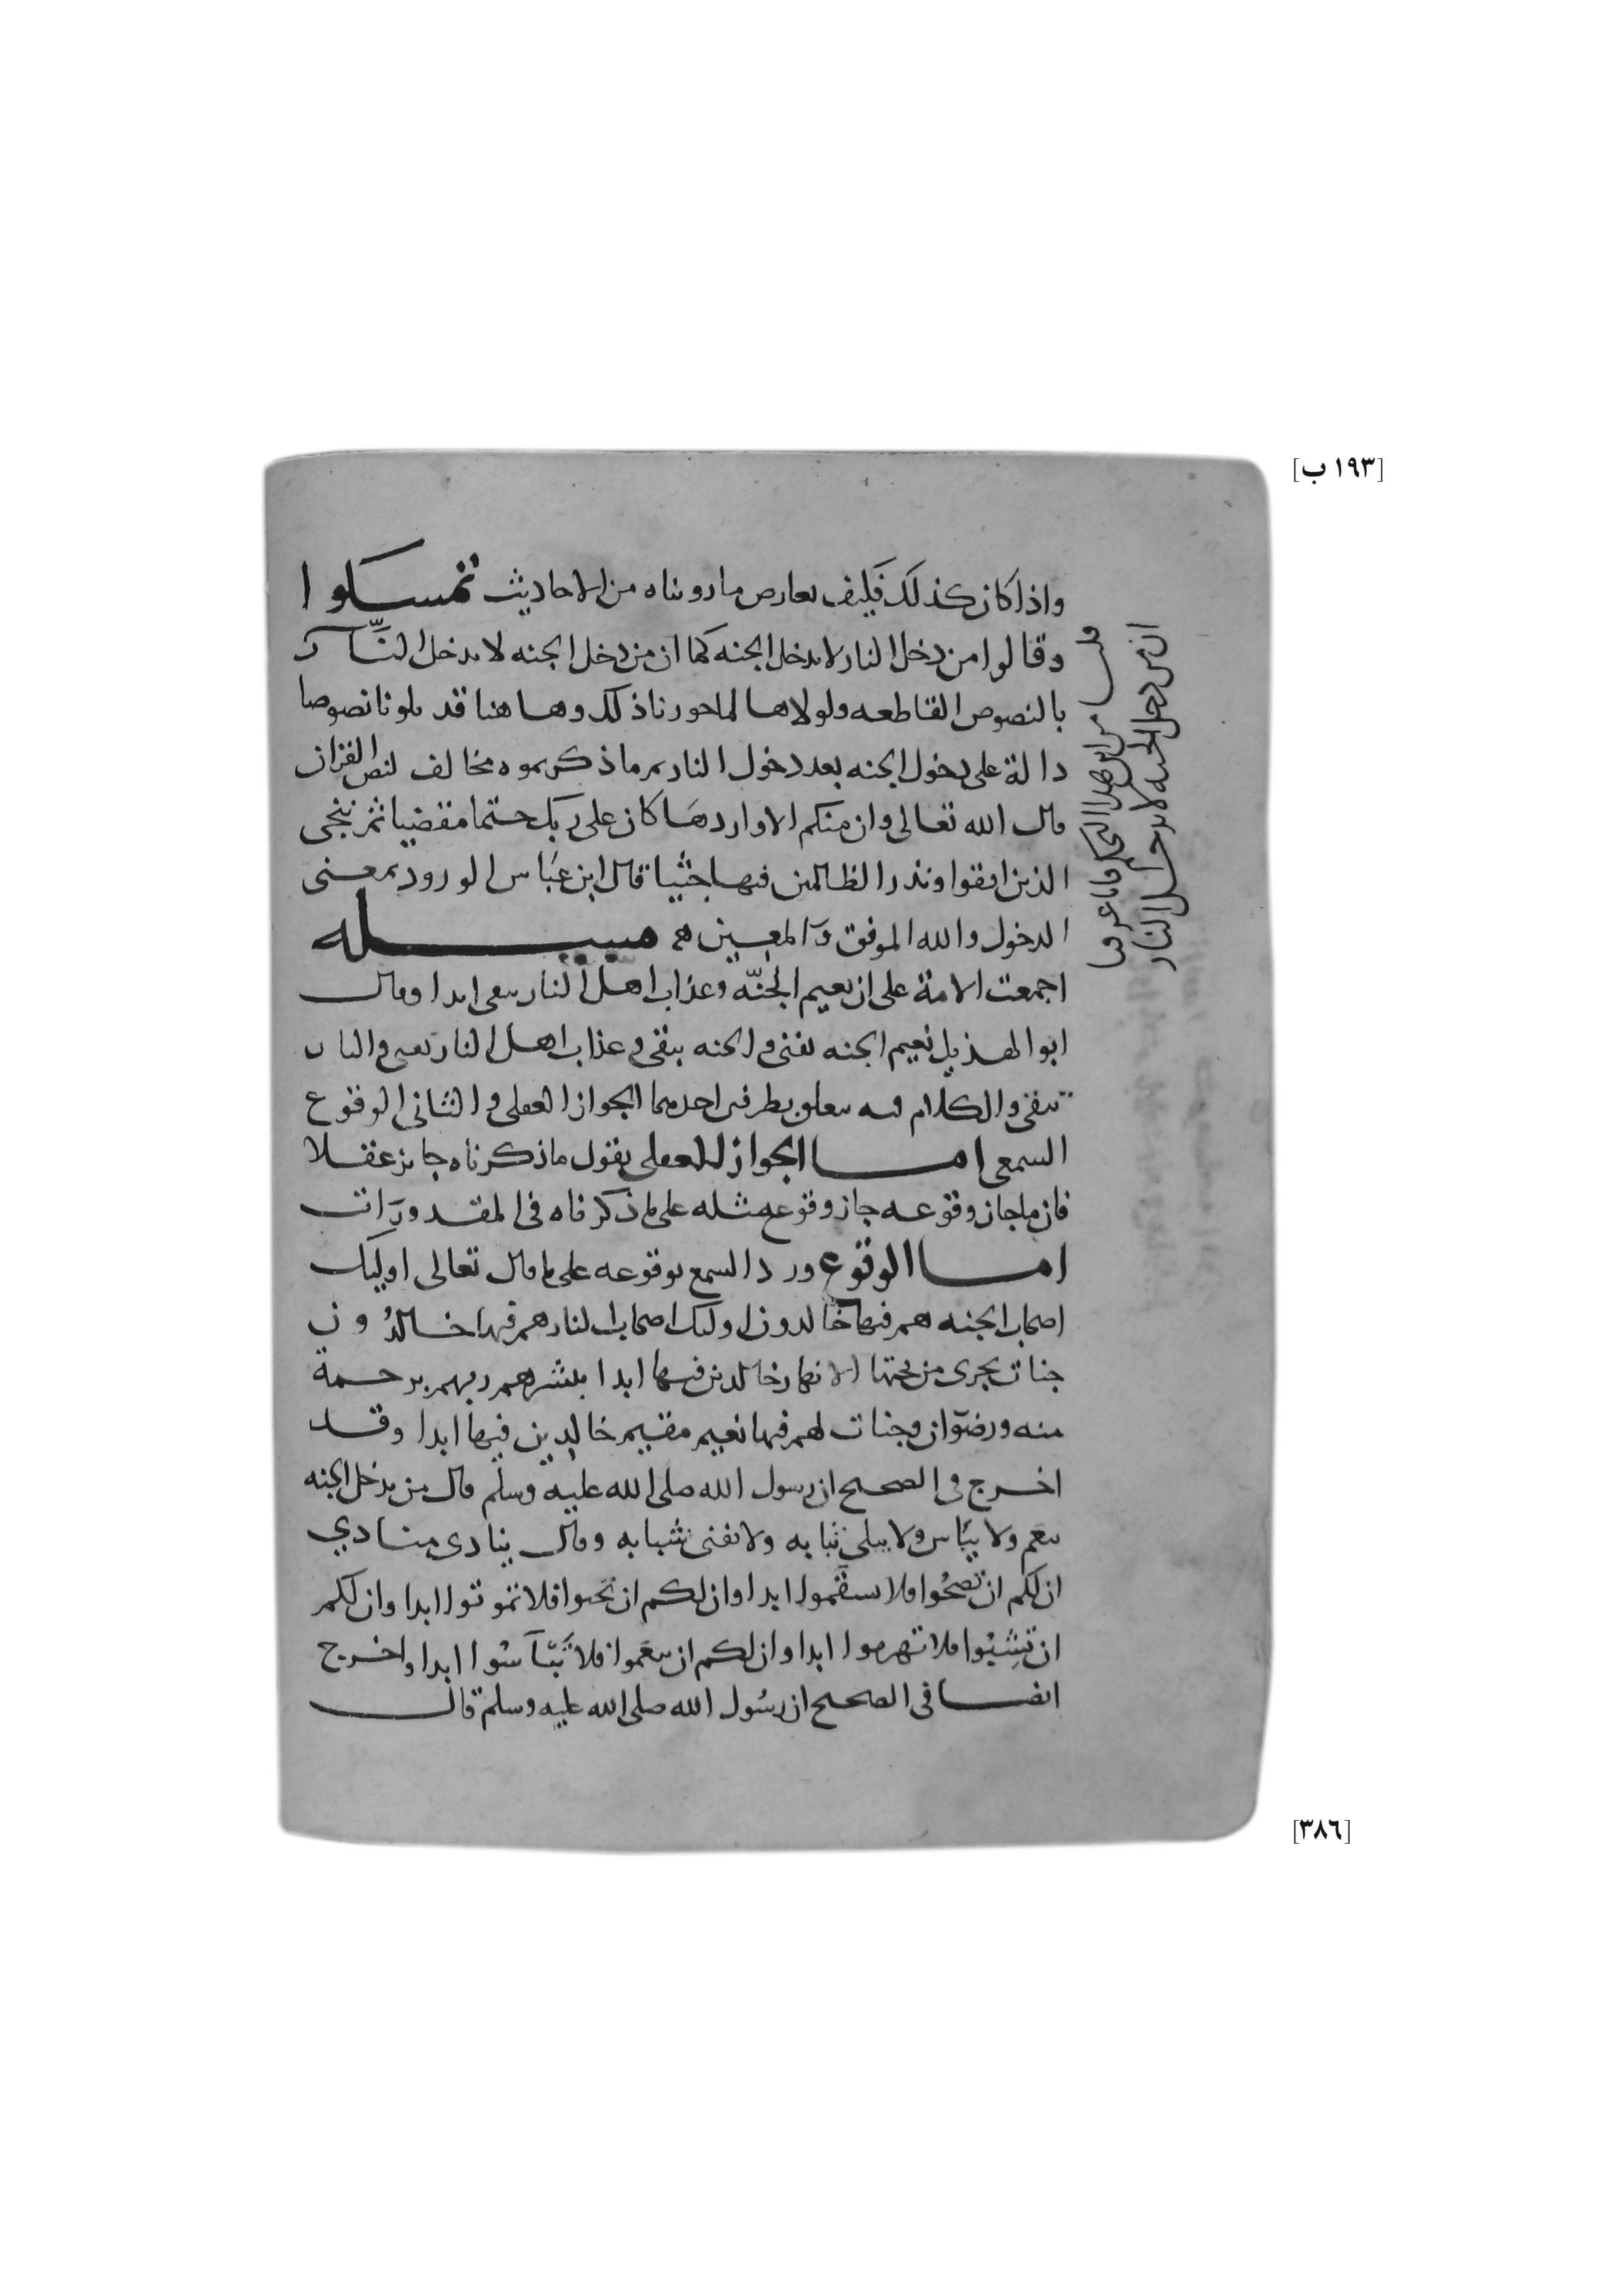 [١٩٣ ب]
واذا كان كذلك فكيف يعارض ما رويناه من الاحاديث تمسكوا
وقالوا من دخل النار لا يدخل الجنه كما ان من دخل الجنه لا يدخل النار
بالنصوص القاطعه ولولاها لما جوزنا ذلك وهاهنا قد تلونا نصوصا
دالة على دخول الجنه بعد دخول النار ثم ما ذكرتموه مخالف لنص القران
قال الله تعالى وان منكم الا واردها كان على ربك حتما مقضيا ثم ننجى
الذين اتقوا ونذر الظالمين فيها جثيا قال ابن عباس الورود بمعنى
الدخول والله الموفق والمعين مسله
اجمعت الامة على ان نعيم الجنة وعذاب اهل النار يبقى ابدا وقال
ابو الهذيل نعيم الجنه يفنى والجنه يبقى وعذاب اهل النار يفنى والنار
تبقى والكلام فيه يتعلق بطرفين احدهما الجواز العقلى والثانى الوقوع
السمعى اما الجواز العقلى نقول ما ذكرناه جايز عقلا
فان ما جاز وقوعه جاز وقوع مثله على ما ذكرناه فى المقدورات
اما الوقوع ورد السمع بوقوعه على ما قال تعالى اوليك
اصحاب الجنه هم فيها خالدون اوليك اصحاب النار هم فيها خالدون
جنات تجرى من تحتها الانهار خالدين فيها ابدا يبشرهم ربهم برحمة
منه ورضوان وجنات لهم فيها نعيم مقيم خالدين فيها ابدا وقد
اخرج فى الصحيح ان رسول الله صلى الله عليه وسلم قال من يدخل الجنه
ينعم ولا يبأس ولا يبلى ثيابه ولا يفنى شبابه وقال ينادى منادي
ان لكم ان تصحوا فلا تسقموا ابدا وان لكم ان تحيوا فلا تموتوا ابدا وان لكم
ان تشبوا فلا تهرموا ابدا وان لكم ان تنعموا فلا تبأسوا ابدا واخرج
ايضا فى الصحيح ان رسول الله صلى الله عليه وسلم قال
قلنا من اين هذا التحكم وما عرفنا
ان من دخل الجنه لا يدخل النار
[٣٨٦]